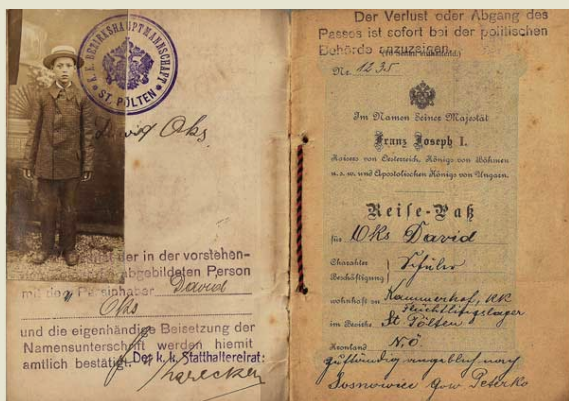 K. K. BEZIRKSHAUPTMANNSCHAFT
ST. PÖLTEN
David Oks
der in der vorstehen-
abgebildeten Person
mit dem Paßinhaber David
Oks
und die eigenhändige Beisetzung der
Namensunterschrift werden hiemit
amtlich bestätigt.
Der k. k. Statthaltereirat:
Der Verlust oder Abgang des
Passes ist sofort bei der politischen
Behörde anzuzeigen.
Nr. 1235
Im Namen Seiner Majestät
Franz Joseph I.
Kaisers von Oesterreich, Königs von Böhmen
u. s. w. und Apostolischen Königs von Ungarn.
Reise-Paß
für Oks David
Charakter
Beschäftigung } Schüler
wohnhaft zu Kammerhof, KK
Flüchtlingslager
im Bezirke St. Pölten
Kronland N.Ö
zuständig angeblich nach
Sosnowice gow. Petrko